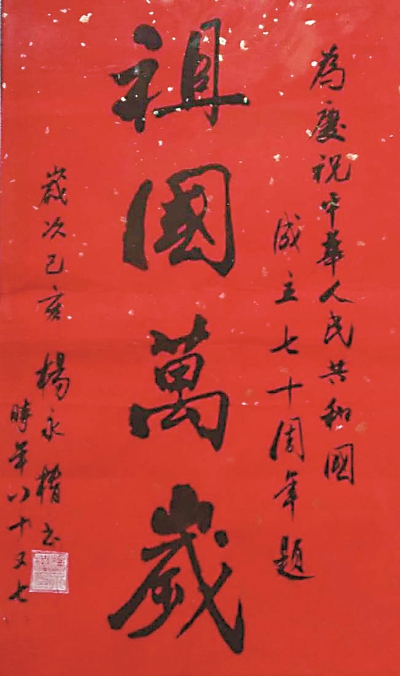 為慶祝中華人民共和國
成立七十周年題
祖國萬歲
歲次己亥 楊永橫书
時年八十又七